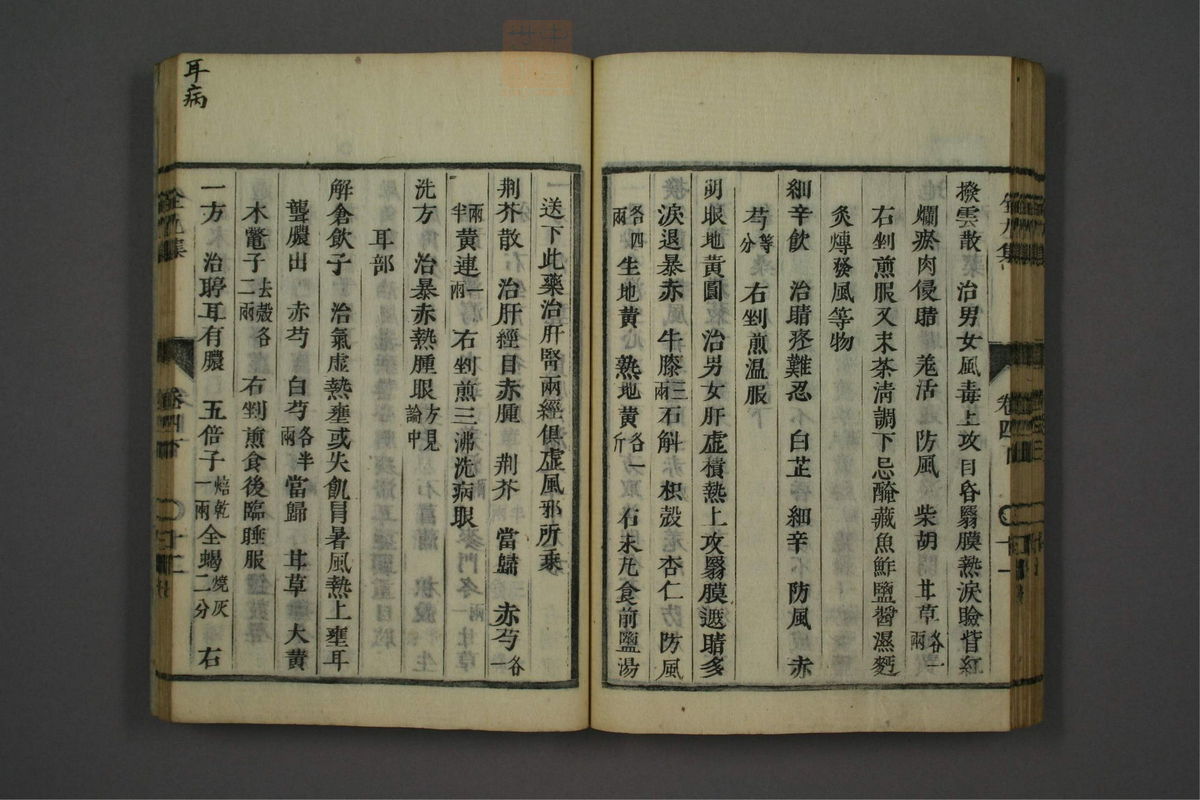 撥雲散 治男女風毒上攻目昏翳膜熱淚瞼眥紅
爛瘀肉侵睛 羗活 防風 柴胡 甘草各一兩
右剉煎服又末茶清調下忌醃藏魚鮓鹽醬濕麪
炙煿發風等物
細辛飲 治睛疼難忍 白芷 細辛 防風 赤
芍等分 右剉煎温服
明眼地黃圓 治男女肝虛積熱上攻翳膜遮睛多
淚退暴赤 牛膝三兩 石斛 枳殼 杏仁 防風
各四兩 生地黃 熟地黃各一斤 右末丸食前鹽湯
送下此藥治肝腎兩經俱虛風邪所乘
荆芥散 治肝經目赤腫 荆芥 當歸 赤芍各一
兩半 黃連一兩 右剉煎三沸洗病眼
洗方 治暴赤熱腫眼方見論中
耳部
解倉飲子 治氣虛熱壅或失飢冐暑風熱上壅耳
聾膿出 赤芍 白芍各半兩 當歸 甘草 大黃
木鼈子去殼各二兩 右剉煎食後臨睡服
一方 治聤耳有膿 五倍子焙乾一兩 全蝎燒灰二分 右
耳病
卷四下
十二